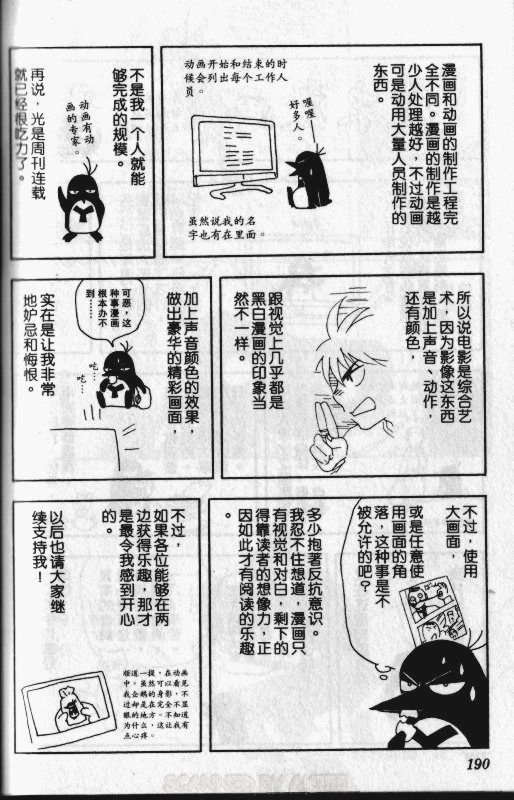 漫画和动画的制作工程完
全不同。漫画的制作是越
少人处理越好，不过动画
可是动用大量人员制作的
东西。
动画开始和结束的时
候会列出每个工作人
员。
喔喔——
好多人。
虽然说我的名
字也有在里面。
不是我一个人就能
够完成的规模。
动画有动
画的专家。
再说，光是周刊连载
就已经很吃力了。
所以说电影是综合艺
术，因为影像这东西
是加上声音、动作，
还有颜色，
跟视觉上几乎都是
黑白漫画的印象当
然不一样。
加上声音颜色的效果，
做出豪华的精彩画面，
可恶，这
种事漫画
根本办不
到……
吃…
吃…
实在是让我非常
地妒忌和悔恨。
不过，使用
大画面，
或是任意使
用画面的角
落，这种事是不
被允许的吧？
多少抱著反抗意识。
我忍不住想道，漫画只
有视觉和对白，剩下的
得靠读者的想像力，正
因如此才有阅读的乐趣
。
不过，
如果各位能够在两
边获得乐趣，那才
是最令我感到开心
的。
以后也请大家继
续支持我！
顺道一提，在动画
中，虽然可以看见
我企鹅的身影，不
过却是在完全不显
眼的地方。不知道
为什么，这让我有
点心疼。
190